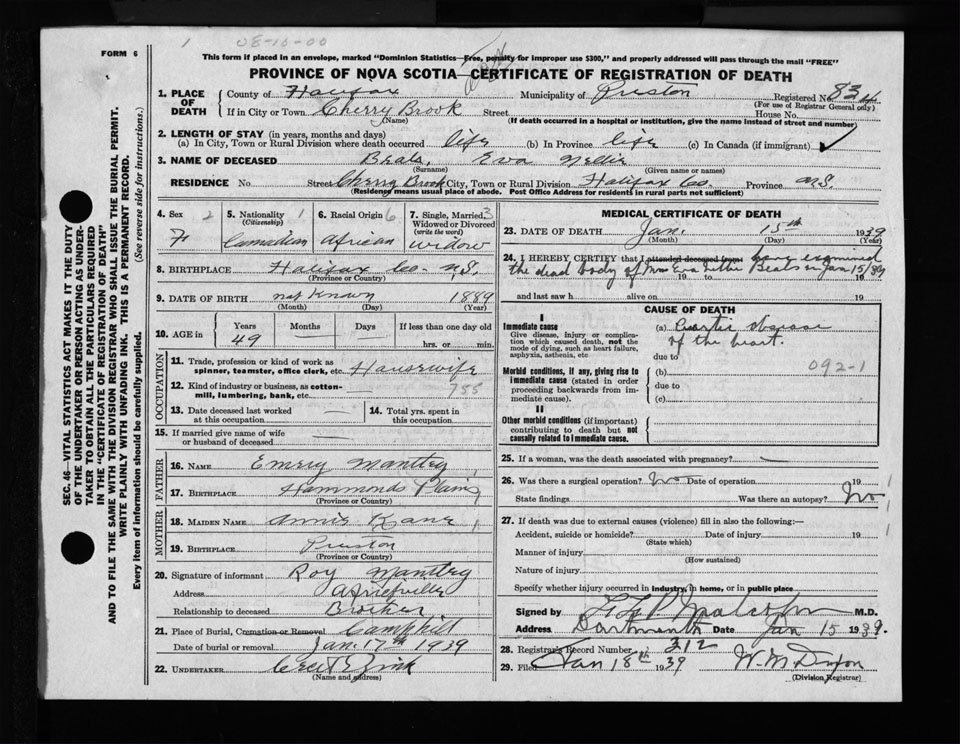 FORM 6
1 08-10-00
This form if placed in an envelope, marked "Dominion Statistics—Free, penalty for improper use $300," and properly addressed will pass through the mail "FREE"
PROVINCE OF NOVA SCOTIA—CERTIFICATE OF REGISTRATION OF DEATH
1. PLACE OF DEATH
County of Halifax Municipality of Preston Registered No. 834
(For use of Registrar General only)
If in City or Town Cherry Brook Street House No.
(Name) (If death occurred in a hospital or institution, give name instead of street and number)
2. LENGTH OF STAY (in years, months and days)
(a) In City, Town or Rural Division where death occurred life (b) In Province life (c) In Canada (if immigrant)
3. NAME OF DECEASED Beals, Eva Nellie
(Surname) (Given name or names)
RESIDENCE No Street Cherry Brook City, Town or Rural Division Halifax Co. Province N.S.
(Residency means usual place of abode. Post Office Address for residents in rural parts not sufficient)
SEC. 46—VITAL STATISTICS ACT MAKES IT THE DUTY
OF THE UNDERTAKER OR PERSON ACTING AS UNDERTAKER TO OBTAIN ALL THE PARTICULARS REQUIRED
IN THE "CERTIFICATE OF REGISTRATION OF DEATH"
AND TO FILE THE SAME WITH THE DIVISION REGISTRAR WHO SHALL ISSUE THE BURIAL PERMIT.
WRITE PLAINLY WITH UNFADING INK. THIS IS A PERMANENT RECORD.
Every item of information should be carefully supplied. (See reverse side for instructions.)
4. Sex 2 5. Nationality 1 6. Racial Origin 6 7. Single, Married 3
(Citizenship) Widowed or Divorced
(write the word)
F Canadian African widow
8. BIRTHPLACE Halifax Co. N.S.
(Province or Country)
9. DATE OF BIRTH not known 1889
(Month) (Day) (Year)
10. AGE in Years Months Days If less than one day old
49 — — hrs. or min.
OCCUPATION
11. Trade, profession or kind of work as
spinner, teamster, office clerk, etc. Housewife
12. Kind of industry or business, as cotton-
mill, lumbering, bank, etc. — 788
13. Date deceased last worked
at this occupation —
14. Total yrs. spent in
this occupation
15. If married give name of wife
or husband of deceased —
FATHER
16. NAME Emery Mantley
17. BIRTHPLACE Hammonds Plains
(Province or Country)
MOTHER
18. MAIDEN NAME Annie Kane
19. BIRTHPLACE Preston
(Province or Country)
20. Signature of informant Roy Mantley
Address Africville
Relationship to deceased Brother
21. Place of Burial, Cremation or Removal
Date of burial or removal Jan. 17th 1939
22. UNDERTAKER Zink
(Name and address)
MEDICAL CERTIFICATE OF DEATH
23. DATE OF DEATH Jan. 15th 1939
(Month) (Day) (Year)
24. I HEREBY CERTIFY that I attended deceased from have examined
the dead body of Mrs Eva Beals on Jan 15/39
19 to 19
and last saw h alive on 19
CAUSE OF DEATH
I
Immediate cause
Give disease, injury or complication which caused death, not the
mode of dying, such as heart failure,
asphyxia, asthenia, etc.
(a) disease
of the heart.
due to
092-1
Morbid conditions, if any, giving rise to
immediate cause (stated in order
proceeding backwards from immediate cause).
(b)
due to
(c)
II
Other morbid conditions (if important)
contributing to death but not
causally related to immediate cause.
25. If a woman, was the death associated with pregnancy? —
26. Was there a surgical operation? No Date of operation 19
State findings Was there an autopsy? No
27. If death was due to external causes (violence) fill in also the following:—
Accident, suicide or homicide? Date of injury 19
(State which)
Manner of injury
(How sustained)
Nature of injury
Specify whether injury occurred in industry, in home, or in public place
Signed by Malcolm M.D.
Address Dartmouth Date Jan 15 1939.
28. Registrar's Record Number 212
29. Filed Jan 18th 1939 W. M. Dyson
(Division Registrar)